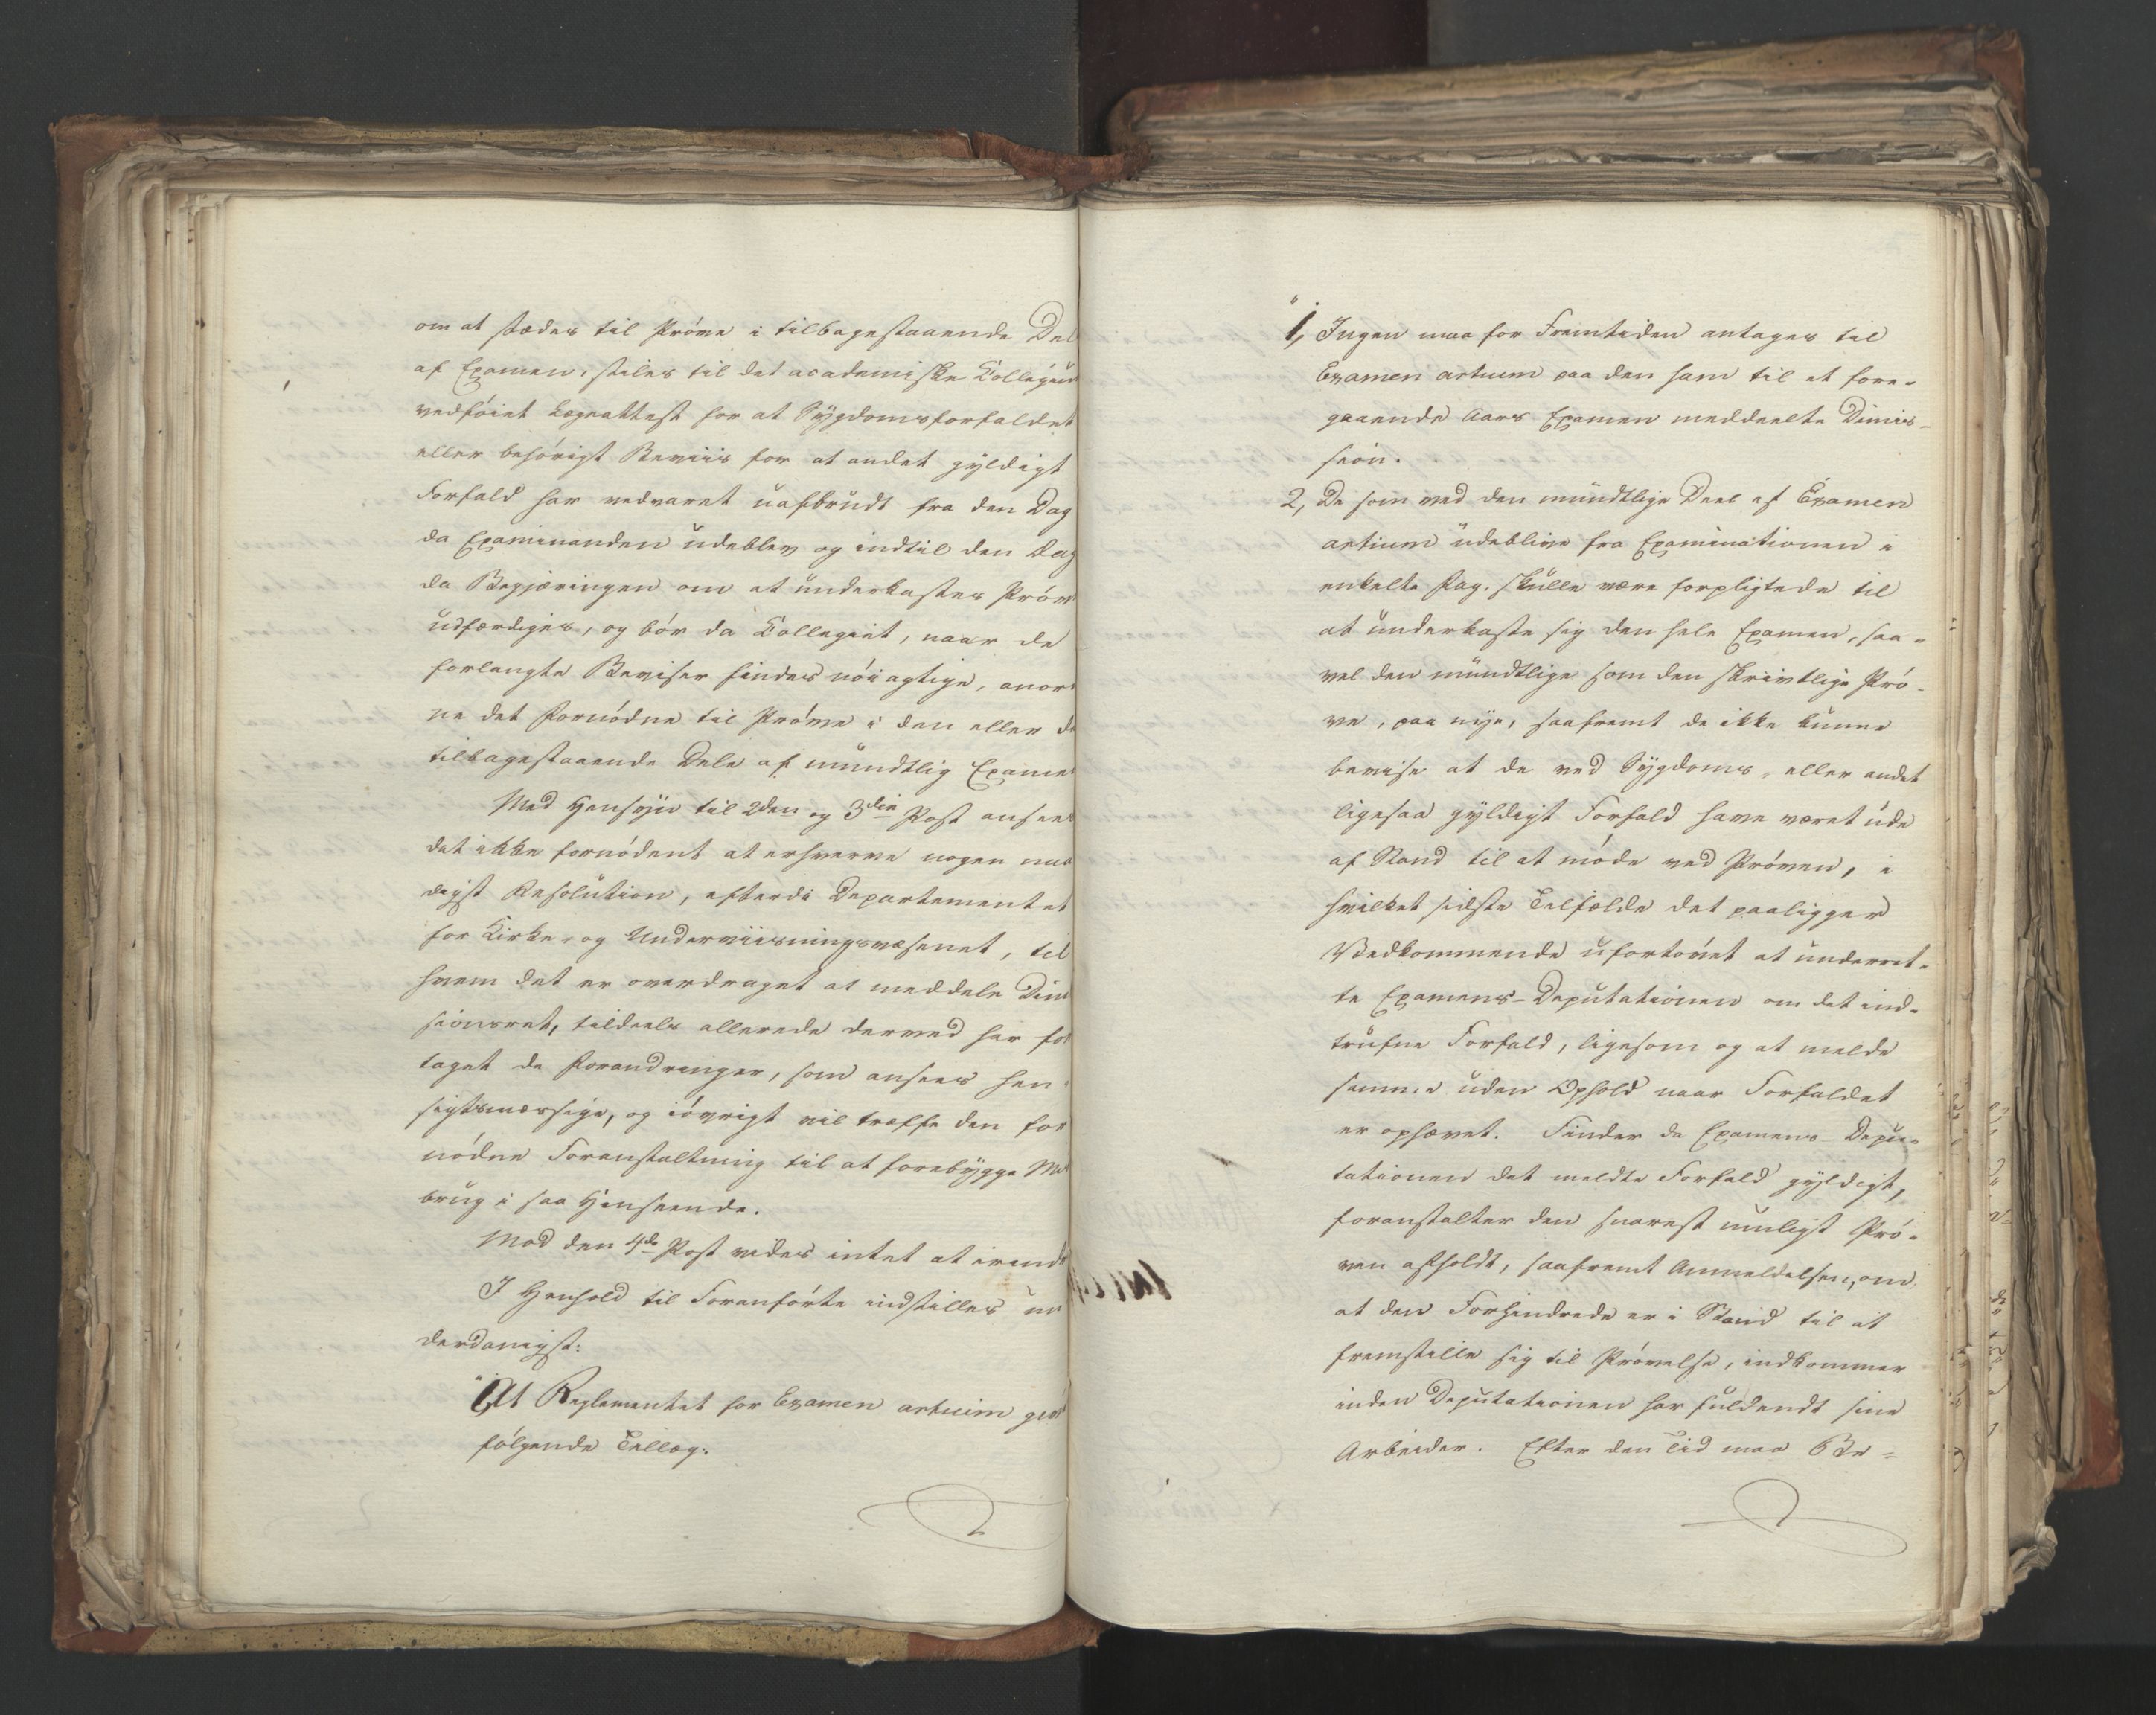 om at stædes til Prøve i tilbagestaaende Del
af Examen, stiles til det academiske Collegium
vedføiet Lægeattest for at Sygdomsforfaldet
eller behørigt Beviis for at andet gyldigt
Forfald har vedvaret uafbrudt fra den Dag
da Examinanden udeblev og indtil den Dag
da Begjæringen om at underkastes Prøv
udfærdiges, og bør da Collegiet, naar de
forlangte Beviser findes nøiagtige, anord
ne det Fornødne til Prøve i den eller de
tilbagestaaende Dele af mundtlig Examen
Med Hensyn til 2den og 3die Post ansees
det ikke fornødent at erhverve nogen naa
digst Resolution, efterdi Departementet
for Kirke- og Underviisningsvæsenet, til
hvem det er overdraget at meddele Dimis
sionsret, tildeels allerede derved har fore
taget de Forandringer, som ansees hen
sigtsmæssige, og iøvrigt vil træffe den for
nødne Foranstaltning til at forebygge Mis
brug i saa Henseende.
Mod den 4de Post vides intet at erindre
I Henhold til Foranførte indstilles un
derdanigst:
"At Reglementet for Examen artium gives
følgende Tillæg:
"1, Ingen maa for Fremtiden antages til
Examen artium paa den ham til et fore-
gaaende Aars Examen meddeelte Dimis-
sion.
2, De som ved den mundtlige Deel af Examen
artium udeblive fra Examinationen i
enkelte Fag, skulle være forpligtede til
at underkaste sig den hele Examen, saa-
vel den mundtlige som den skrivtlige Prø-
ve, paa nye, saafremt de ikke kunne
bevise at de ved Sygdoms- eller andet
ligesaa gyldigt Forfald have været ude
af Stand til at møde ved Prøven, i
hvilket sidste Tilfælde det paaligger
Vedkommende ufortøvet at underret-
te Examens-Deputationen om det ind-
trufne Forfald, ligesom og at melde
samme uden Ophold naar Forfaldet
er ophævet. Finder da Examens Depu-
tationen det meldte Forfald gyldigt,
foranstalter den snarest muligt Prø-
ven afholdt, saafremt Anmeldelsen, om
at den Forhindrede er i Stand til at
fremstille sig til Prøvelse, indkommer
inden Deputationen har fuldendt sine
Arbeider. Efter den Tid maa Be-